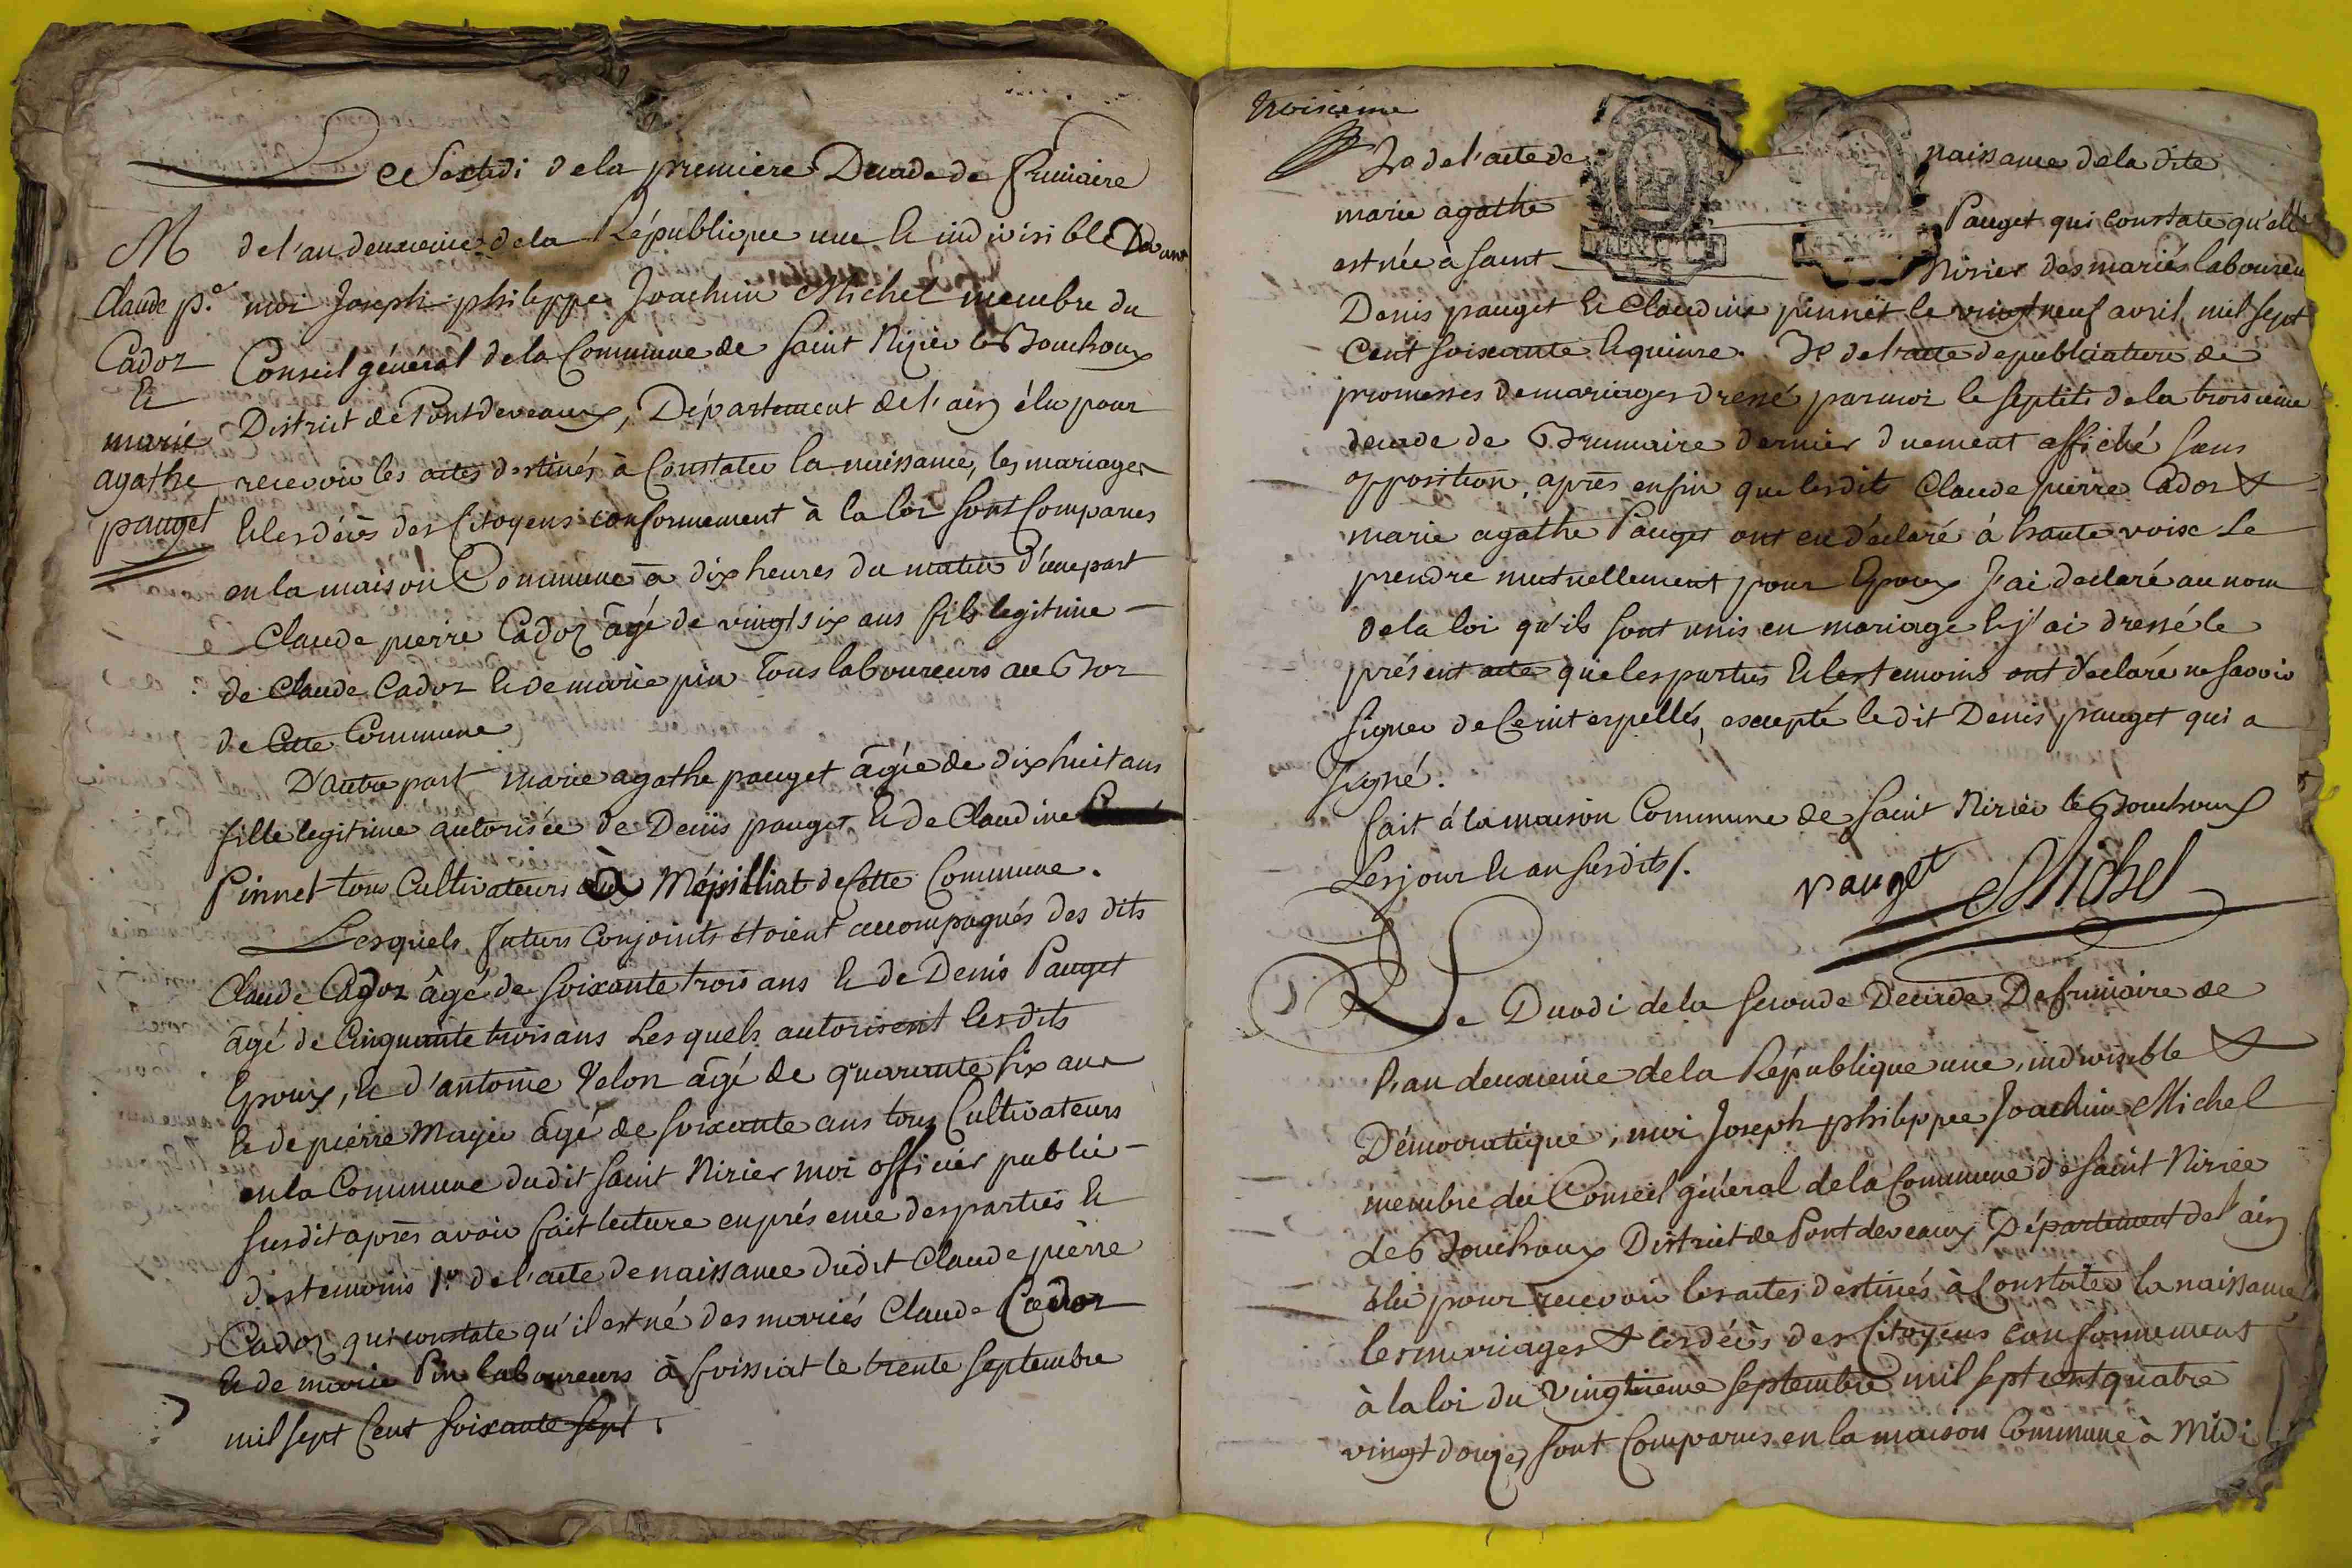 Le Sextidi de la premiere Decade de frimaire
M
de l'an deuxieme de la République une et indivisible Devant
Claude pe.
moi Joseph philippe Joachim Michel membre du
Cadoz
Conseil général de la Commune de saint Nizier le Bouchoux
et
District de Pontdevaux, Département de l'ain élu pour
marie
agathe
recevoir les actes destinés à Constater la naissance, les mariages
pauget
et les décès des Citoyens conformement à la loi sont Comparus
en la maison Commune à dix heures du matin d'une part
Claude pierre Cadoz âgé de vingt six ans fils legitime
de Claude Cadoz et de marie pin tous laboureurs au Bor
de Cette Commune
D'autre part marie agathe pauget âgée de dix huit ans
fille legitime autorisée de Denis pauget et de Claudine
Pinnet tous Cultivateurs à Mépilliat de Cette Commune.
Lesquels futurs Conjoints étoient accompagnés des dits
Claude Cadoz âgé de soixante trois ans et de Denis Pauget
âgé de Cinquante trois ans Lesquels autorisent lesdits
Epoux, et d'antoine Velon âgé de quarante six ans
et de pierre Mayer âgé de soixante ans tous Cultivateurs
en la Commune dudit saint Nizier moi officier public
susdit après avoir fait lecture en présence des parties et
des temoins 1o. de l'acte de naissance dudit Claude pierre
Cadoz qui constate qu'il est né des mariés Claude Cadoz
et de marie Pin laboureurs à foissiat le trente septembre
mil sept Cent soixante sept.
troisième
2o de l'acte de naissance de la dite
marie agathe Pauget qui constate qu'elle
est née à saint Nizier des mariés laboureurs
Denis pauget et Claudine pinnet le vingt neuf avril mil sept
Cent soixante et quinze. 3o de l'acte de publication de
promesses de mariages dressé par moi le septidi de la troisieme
decade de Brumaire dernier duement affiché sans
opposition, après enfin que lesdits Claude pierre Cadoz &
marie agathe Pauget ont eu déclaré à haute voix se
prendre mutuellement pour Epoux J'ai declaré au nom
de la loi qu'ils sont unis en mariage et j'ai dressé le
présent acte que les parties et les temoins ont déclaré ne savoir
signer de Ce interpellés, excepté le dit Denis pauget qui a
signé.
fait à la maison Commune de saint Nizier le Bouchoux
Les jour et an susdits/.
pauget Michel
Le Duodi de la seconde Decade De frimaire de
l'an deuxieme de la République une, indivisible &
Démocratique, moi Joseph philippe Joachim Michel
membre du Conseil général de la Commune de saint Nizier
le Bouchoux District de Pontdevaux Département de l'ain
élu pour recevoir les actes destinés à Constater la naissance
les mariages & les décès des Citoyens conformement
à la loi du vingtieme septembre mil sept cent quatre
vingt douze, sont Comparus en la maison Commune à Midi